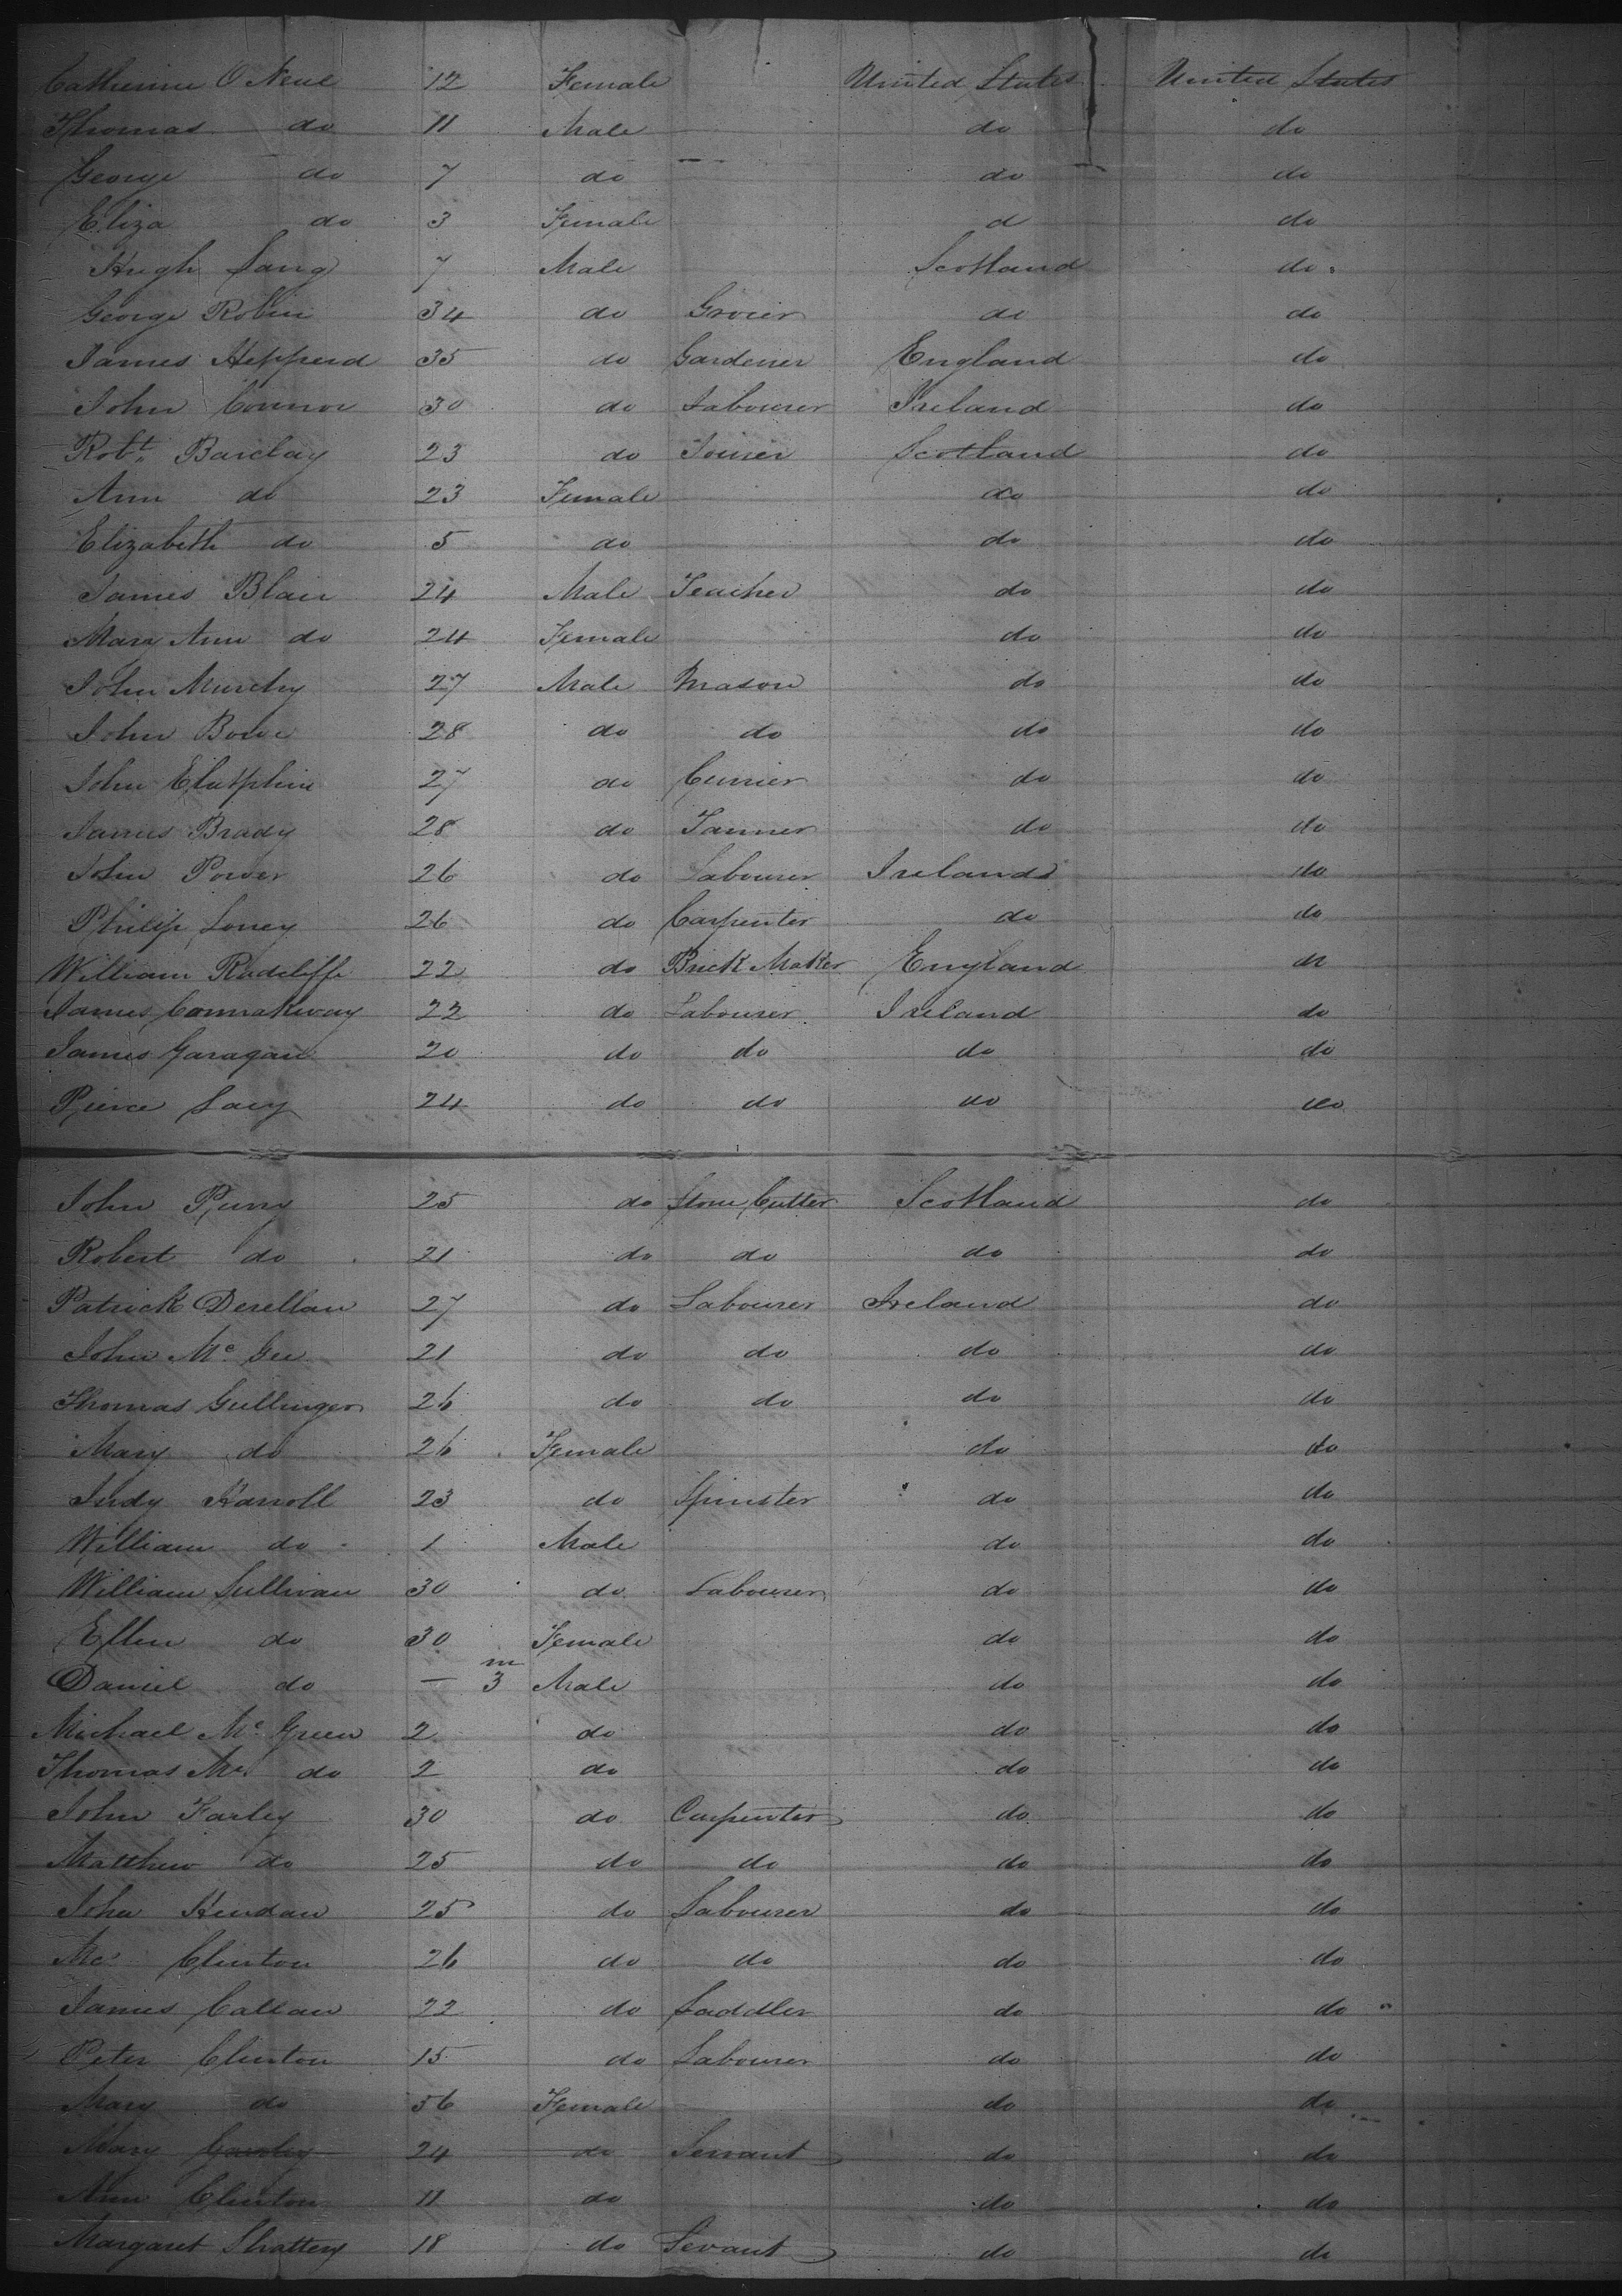 Catherine O Neue 12 Female United States United States
Thomas do 11 Male do do
George do 7 do do do
Eliza do 3 Female d do
Hugh Lang 7 Male Scotland do
George Robin 34 do Grocer do do
James Hepperd 35 do Gardener England do
John Connor 30 do Labourer Ireland do
Robt. Barclay 23 do Joiner Scotland do
Ann do 23 Female do do
Elizabeth do 5 do do do
James Blair 24 Male Teacher do do
Mary Ann do 24 Female do do
John Murchy 27 Male Mason do do
John Bowe 28 do do do do
John 27 do Currier do do
James Brady 28 do Tanner do do
John Power 26 do Labourer Ireland do
Philip Loney 26 do Carpenter do do
William Radcliffe 22 do Brick Maker England do
James 22 do Labourer Ireland do
James Garagan 20 do do do do
Pierce Lacy 24 do do do do
John 25 do Stone Cutter Scotland do
Robert do 21 do do do do
Patrick Derellan 27 do Labourer Ireland do
John Mc Gee 21 do do do do
Thomas Gullinger 26 do do do do
Mary do 26 Female do do
Judy Karroll 23 do Spinster do do
William do 1 Male do do
William Sullivan 30 do Labourer do do
Ellen do 30 Female do do
Daniel do — 3 m Male do do
Michael Mc Green 2 do do do
Thomas Mc do 2 do do do
John Farley 30 do Carpenter do do
Matthew do 25 do do do do
John Kendan 25 do Labourer do do
Mc Clinton 26 do do do do
James Callan 22 do Saddler do do
Peter Clinton 15 do Labourer do do
Mary do 56 Female do do
Mary 24 do Servant do do
Ann Clinton 11 do do do
Margaret Shattery 18 do Sevant do do